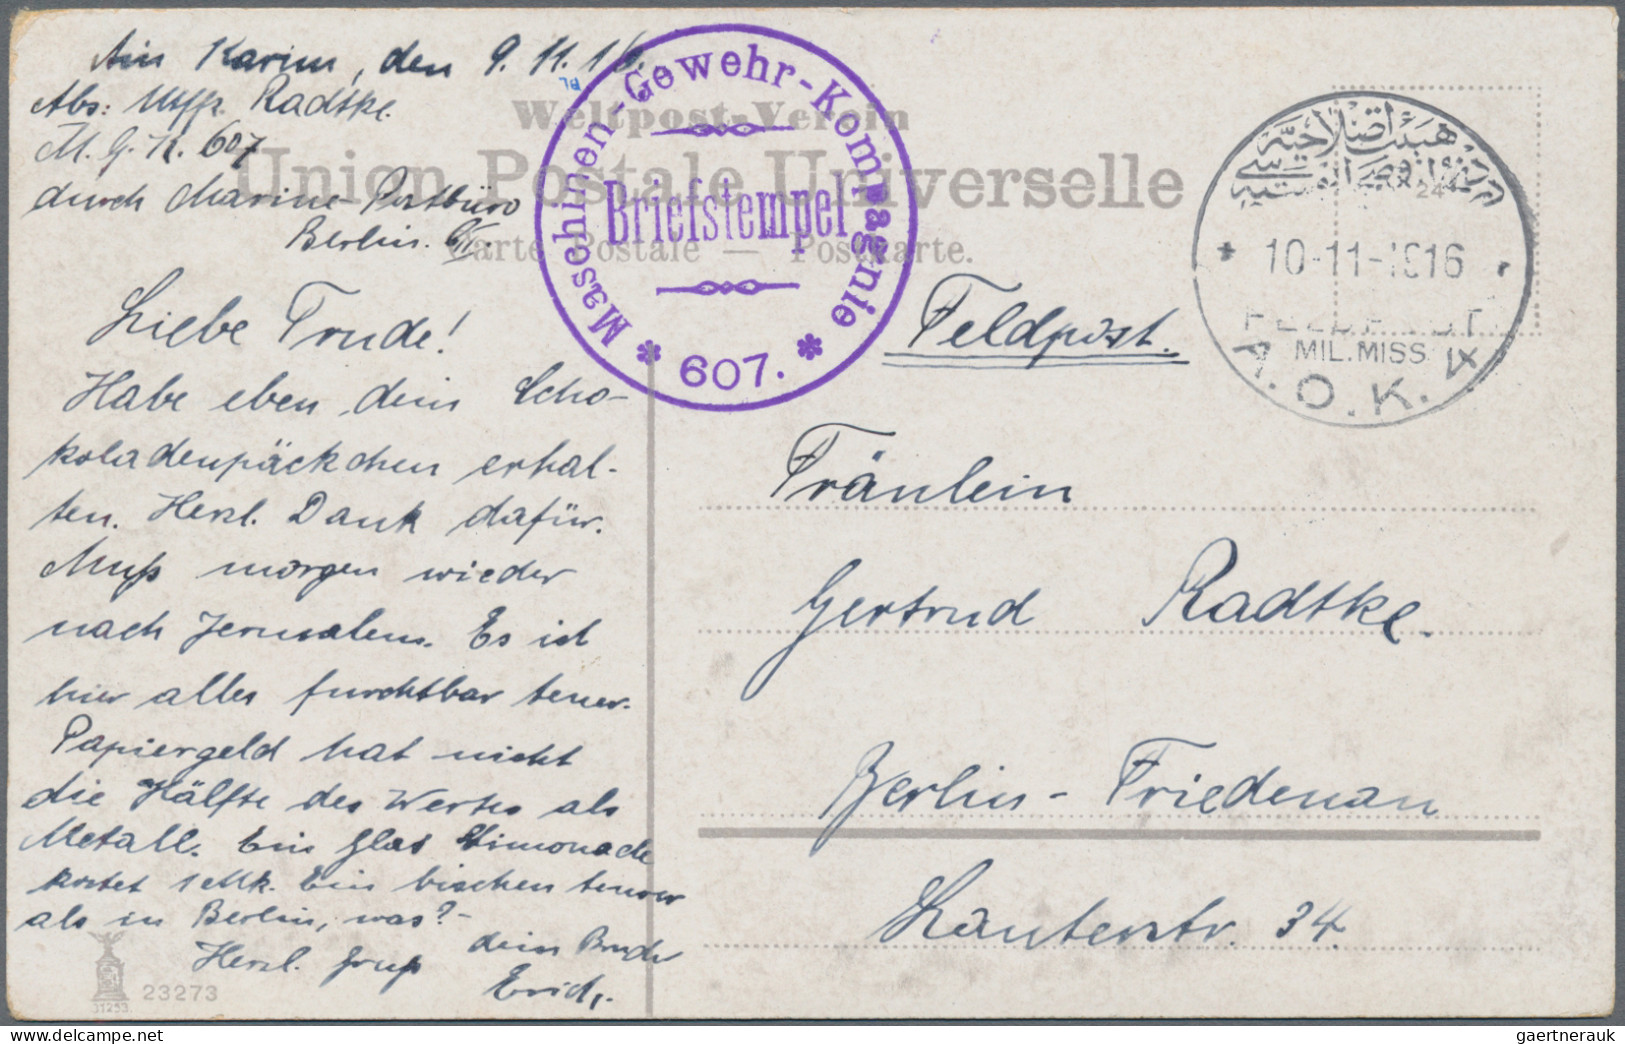 Ain Karim, den 9.11.16.
Abs: Uffz. Radtke.
M.G.K. 607
durch Marine-Postbüro
Berlin.
Weltpost-Verein
Union Postale Universelle
Carte Postale — Postkarte.
Maschinen-Gewehr-Kompagnie
Briefstempel
* 607. *
10-11-1916
FELDPOST
MIL.MISS.
A.O.K. 4
Feldpost.
Liebe Trude!
Habe eben dein Scho-
koladenpäckchen erhal-
ten. Herzl. Dank dafür.
Muß morgen wieder
nach Jerusalem. Es ist
hier alles furchtbar teuer.
Papiergeld hat nicht
die Hälfte des Wertes als
Metall. Ein Glas Limonade
kostet 1 Mk. Ein bischen teurer
als in Berlin, was? –
Herzl. Gruß dein Bruder
Erich.
Fräulein
Gertrud Radtke.
Berlin-Friedenau
Lauterstr. 34.
23273
31253
delcampe.net
gaertnerauk